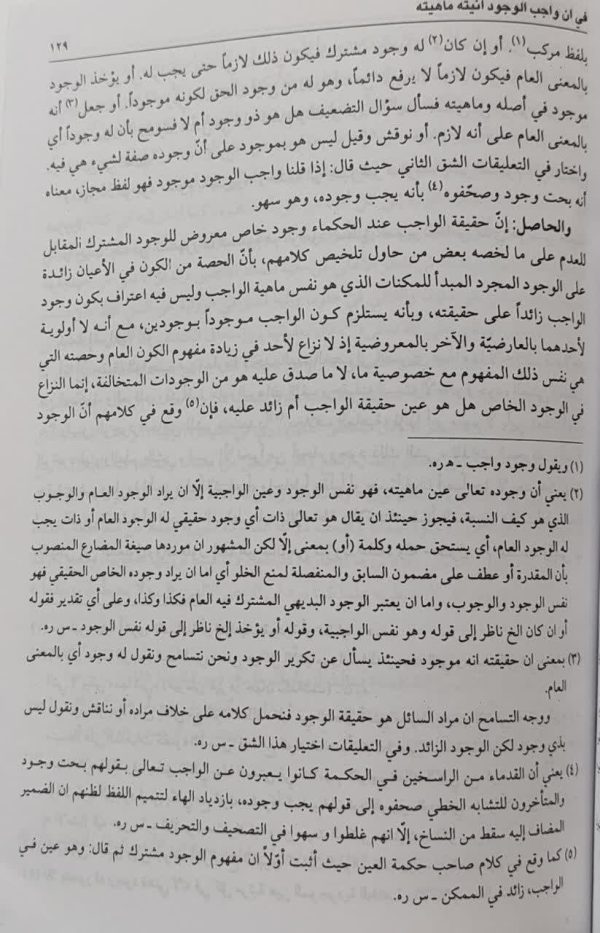 في ان واجب الوجود انيته ماهيته
١٢٩
بلفظ مركب(١). أو إن كان(٢) له وجود مشترك فيكون ذلك لازماً حتى يجب له. أو يؤخذ الوجود
بالمعنى العام فيكون لازماً لا يرفع دائماً، وهو له من وجود الحق لكونه موجوداً. أو جعل(٣) أنه
موجود في أصله وماهيته فسأل سؤال التضعيف هل هو ذو وجود أم لا فسومح بأن له وجوداً أي
بالمعنى العام على أنه لازم. أو نوقش وقيل ليس هو بموجود على أنّ وجوده صفة لشيء هي فيه.
واختار في التعليقات الشق الثاني حيث قال: إذا قلنا واجب الوجود موجود فهو لفظ مجاز، معناه
أنه بحت وجود وصحّفوه(٤) بأنه يجب وجوده، وهو سهو.
والحاصل: إنّ حقيقة الواجب عند الحكماء وجود خاص معروض للوجود المشترك المقابل
للعدم على ما لخصه بعض من حاول تلخيص كلامهم، بأنّ الحصة من الكون في الأعيان زائدة
على الوجود المجرد المبدأ للمكنات الذي هو نفس ماهية الواجب وليس فيه اعتراف بكون وجود
الواجب زائداً على حقيقته، وبأنه يستلزم كون الواجب موجوداً بوجودين، مع أنه لا أولوية
لأحدهما بالعارضيّة والآخر بالمعروضية إذ لا نزاع لأحد في زيادة مفهوم الكون العام وحصته التي
هي نفس ذلك المفهوم مع خصوصية ما، لا ما صدق عليه هو من الوجودات المتخالفة، إنما النزاع
في الوجود الخاص هل هو عين حقيقة الواجب أم زائد عليه، فإن(٥) وقع في كلامهم أنّ الوجود
(١) ويقول وجود واجب ـ ه‍ ره.
(٢) يعني أن وجوده تعالى عين ماهيته، فهو نفس الوجود وعين الواجبية إلّا ان يراد الوجود العام والوجوب
الذي هو كيف النسبة، فيجوز حينئذ ان يقال هو تعالى ذات أي وجود حقيقي له الوجود العام أو ذات يجب
له الوجود العام، أي يستحق حمله وكلمة (أو) بمعنى إلّا لكن المشهور ان موردها صيغة المضارع المنصوب
بأن المقدرة أو عطف على مضمون السابق والمنفصلة لمنع الخلو أي اما ان يراد وجوده الخاص الحقيقي فهو
نفس الوجود والوجوب، واما ان يعتبر الوجود البديهي المشترك فيه العام فكذا وكذا، وعلى أي تقدير فقوله
أو ان كان الخ ناظر إلى قوله وهو نفس الواجبية، وقوله أو يؤخذ إلخ ناظر إلى قوله نفس الوجود ـ س ره.
(٣) بمعنى ان حقيقته انه موجود فحينئذ يسأل عن تكرير الوجود ونحن نتسامح ونقول له وجود أي بالمعنى
العام.
ووجه التسامح ان مراد السائل هو حقيقة الوجود فنحمل كلامه على خلاف مراده أو نناقش ونقول ليس
بذي وجود لكن الوجود الزائد. وفي التعليقات اختيار هذا الشق ـ س ره.
(٤) يعني أن القدماء من الراسخين في الحكمة كانوا يعبرون عن الواجب تعالى بقولهم بحت وجود
والمتأخرون للتشابه الخطي صحفوه إلى قولهم يجب وجوده، بازدياد الهاء لتتميم اللفظ لظنهم ان الضمير
المضاف إليه سقط من النساخ، إلّا انهم غلطوا و سهوا في التصحيف والتحريف ـ س ره.
(٥) كما وقع في كلام صاحب حكمة العين حيث أثبت أوّلاً ان مفهوم الوجود مشترك ثم قال: وهو عين في
الواجب، زائد في الممكن ـ س ره.